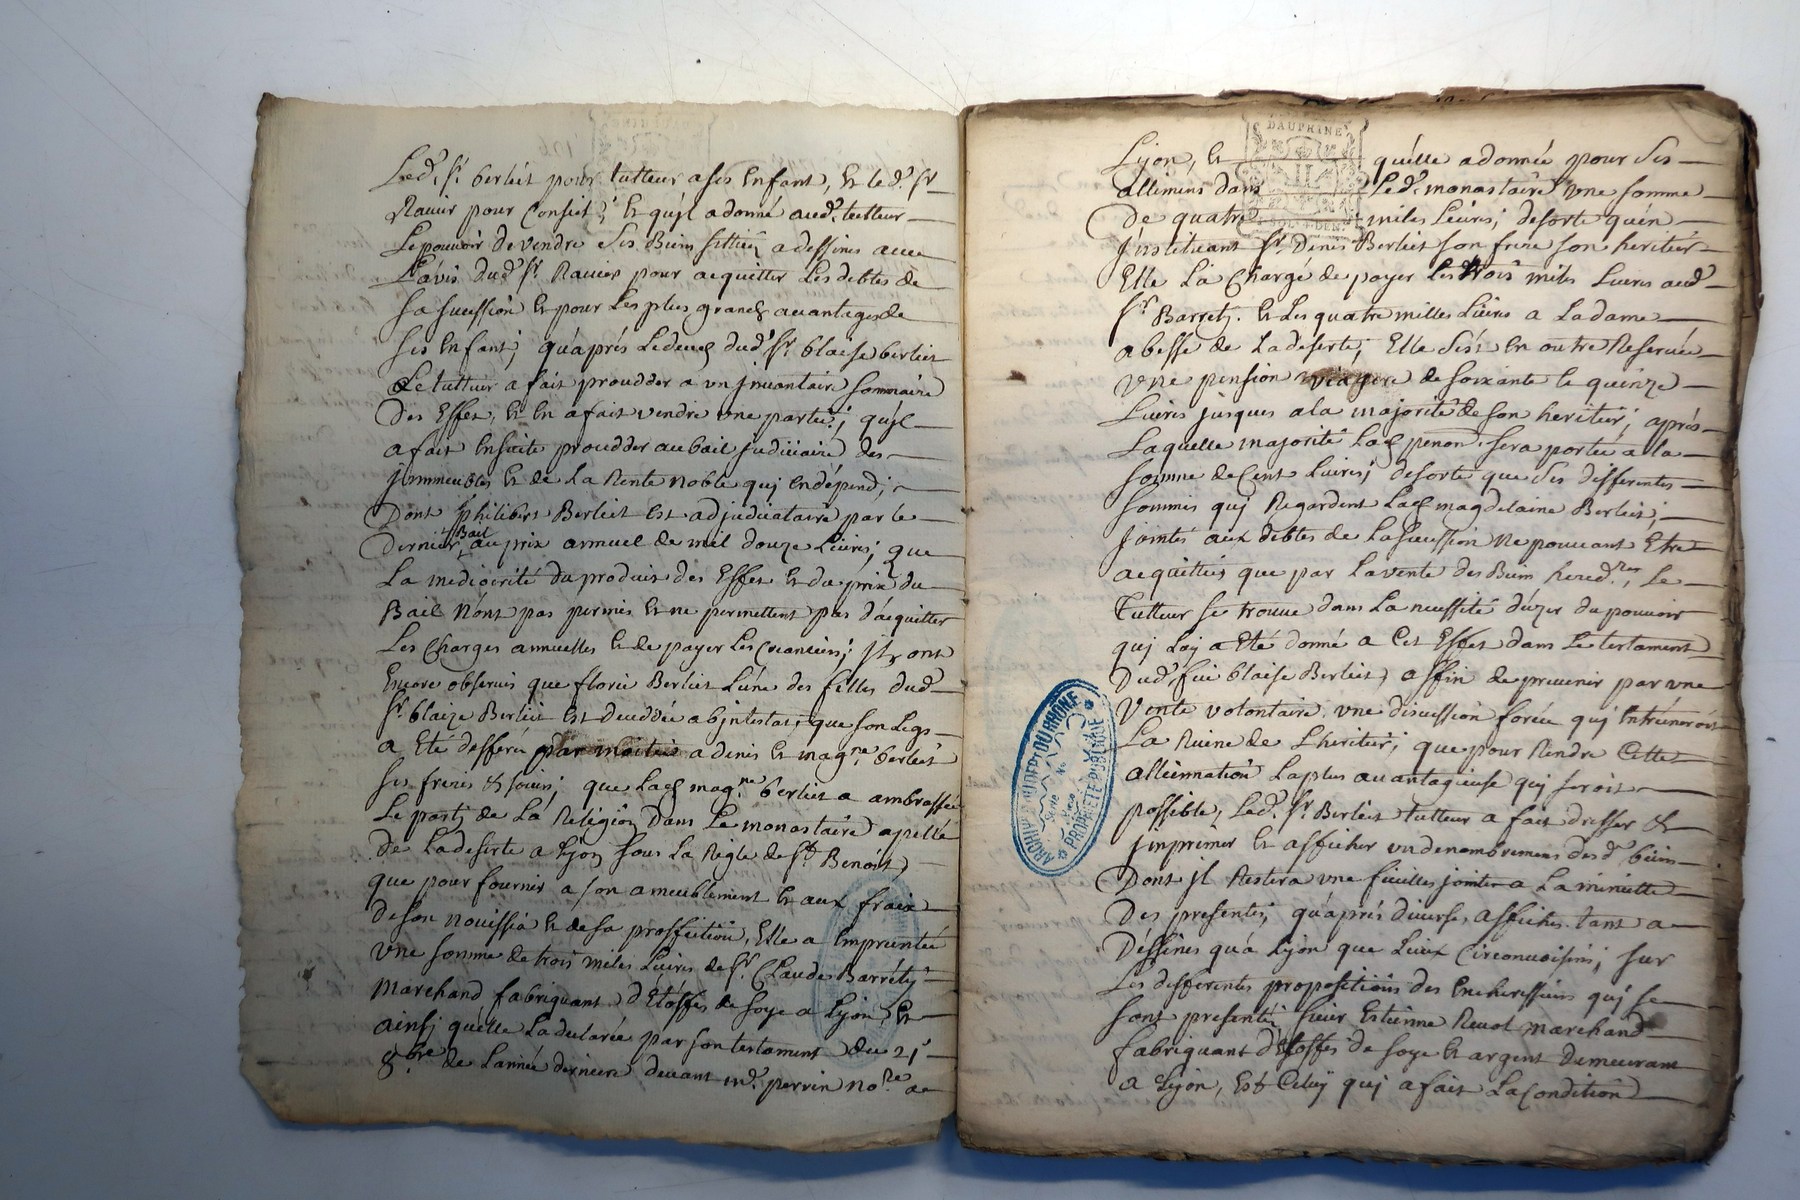 Led.t Sr. berliet pour tutteur a ses Enfant, Et led.t Sr
Ravier pour Conseil; Et qu'jl a donné aud.t tutteur
Le pouvoir de vendre ses Biens scittués a dessines avec
L'avis dud.t Sr. Ravier pour acquitter Les debtes de
sa succession Et pour Les plus grands avantages de
ses Enfant; qu'aprés Le decés dud.t Sr. blaise berliet
Le tutteur a fait proceder a un jnvantaire sommaire
Des Effets, Et En a fait vendre une partie; qu'jl
a fait Ensuite proceder au bail judiciaire des
jmmeubles Et de La Rente noble quj En dépend;
Dont philibert Berliet Est adjudicataire par le
Dernier Bail au prix annuel de mil douze Livres; que
La mediocrité du produit des Effets Et du prix du
Bail N'ont pas permis Et ne permettent pas d'acquitter
Les Charges annuelles Et de payer Les Creanciers; jls ont
Encore observés que florie Berliet L'une des filles dud.t
Sr. blaize Berliet Est decedée abjntestat, que son Legs
a Eté defferé par moitié a denis Et mag.ne berliet
ses freres & soeurs; que Lad. mag.ne berliet a ambrassée
Le partj de La Religion Dans Le monastaire apellé
De La deserte a Lyon sous La Regle de St. Benoist,
que pour fournir a son ameublement Et aux fraix
de son novissia Et de sa proffeition, Elle a Empruntée
une somme de trois miles Livres de Sr. Claude Barréty
marchand fabriquant D'Etoffes de soye a Lyon, Et
ainsj qu'elle La declarée par son testament du 21.e
8.bre de L'année derniere devant m.e perrin no.re a
DAUPHINE
Lyon, Et qu'elle a donnée pour ses
allimens dans Led.t monastaire une somme
De quatre miles Livres; de sorte qu'en
j'nstituant Sr. Denis Berliet son frere son heritier
Elle L'a Chargé de payer Les trois miles Livres aud.t
Sr. Barrety. Et Les quatre milles Livres a La dame
abesse de La deserte; Elle s'est En outre Reservée
une pension viagere de soixante Et quinze
Livres jusques a la majorité de son heritier; aprés
Laquelle majorité Lad. penon. sera portée a la
somme de Cent Livres; de sorte que ses differentes
sommes quj Regardent Lad. magdelaine Berliet;
jointes aux debtes de La succession ne pouvant Etre
acquittées que par La vente des Biens hered.res, Le
Tutteur se trouve dans La necessité d'uzer du pouvoir
quj Luy a Eté donné a Cet Effet dans Le testament
Dud.t feu blaise Berliet, affin de prevenir par une
Vente volontaire une discussion forcée quj Entréneroit
La Ruine de L'heritier; que pour Rendre Cette
allienation La plus avantageuse quj seroit
possible, Led.t Sr Berliet tutteur a fait dresser &
jmprimer Et afficher un denombremens desd.t biens
Dont jl Restera une feuilles jointe a La minutte
Des presentes; qu'aprés diverses affiches tant a
Dessines qu'a Lyon que Lieux Circonvoisins; sur
Les differentes propositions des Encherisseurs quj se
sont presenté, sieur Estienne Revol marchand
fabriquant D'Etoffes de soye Et argent Demeurant
a Lyon, Est Celuy quj a fait La Condition
ARCHIVES DU DEP.T DU RHONE
PROPRIETE PUBLIQUE